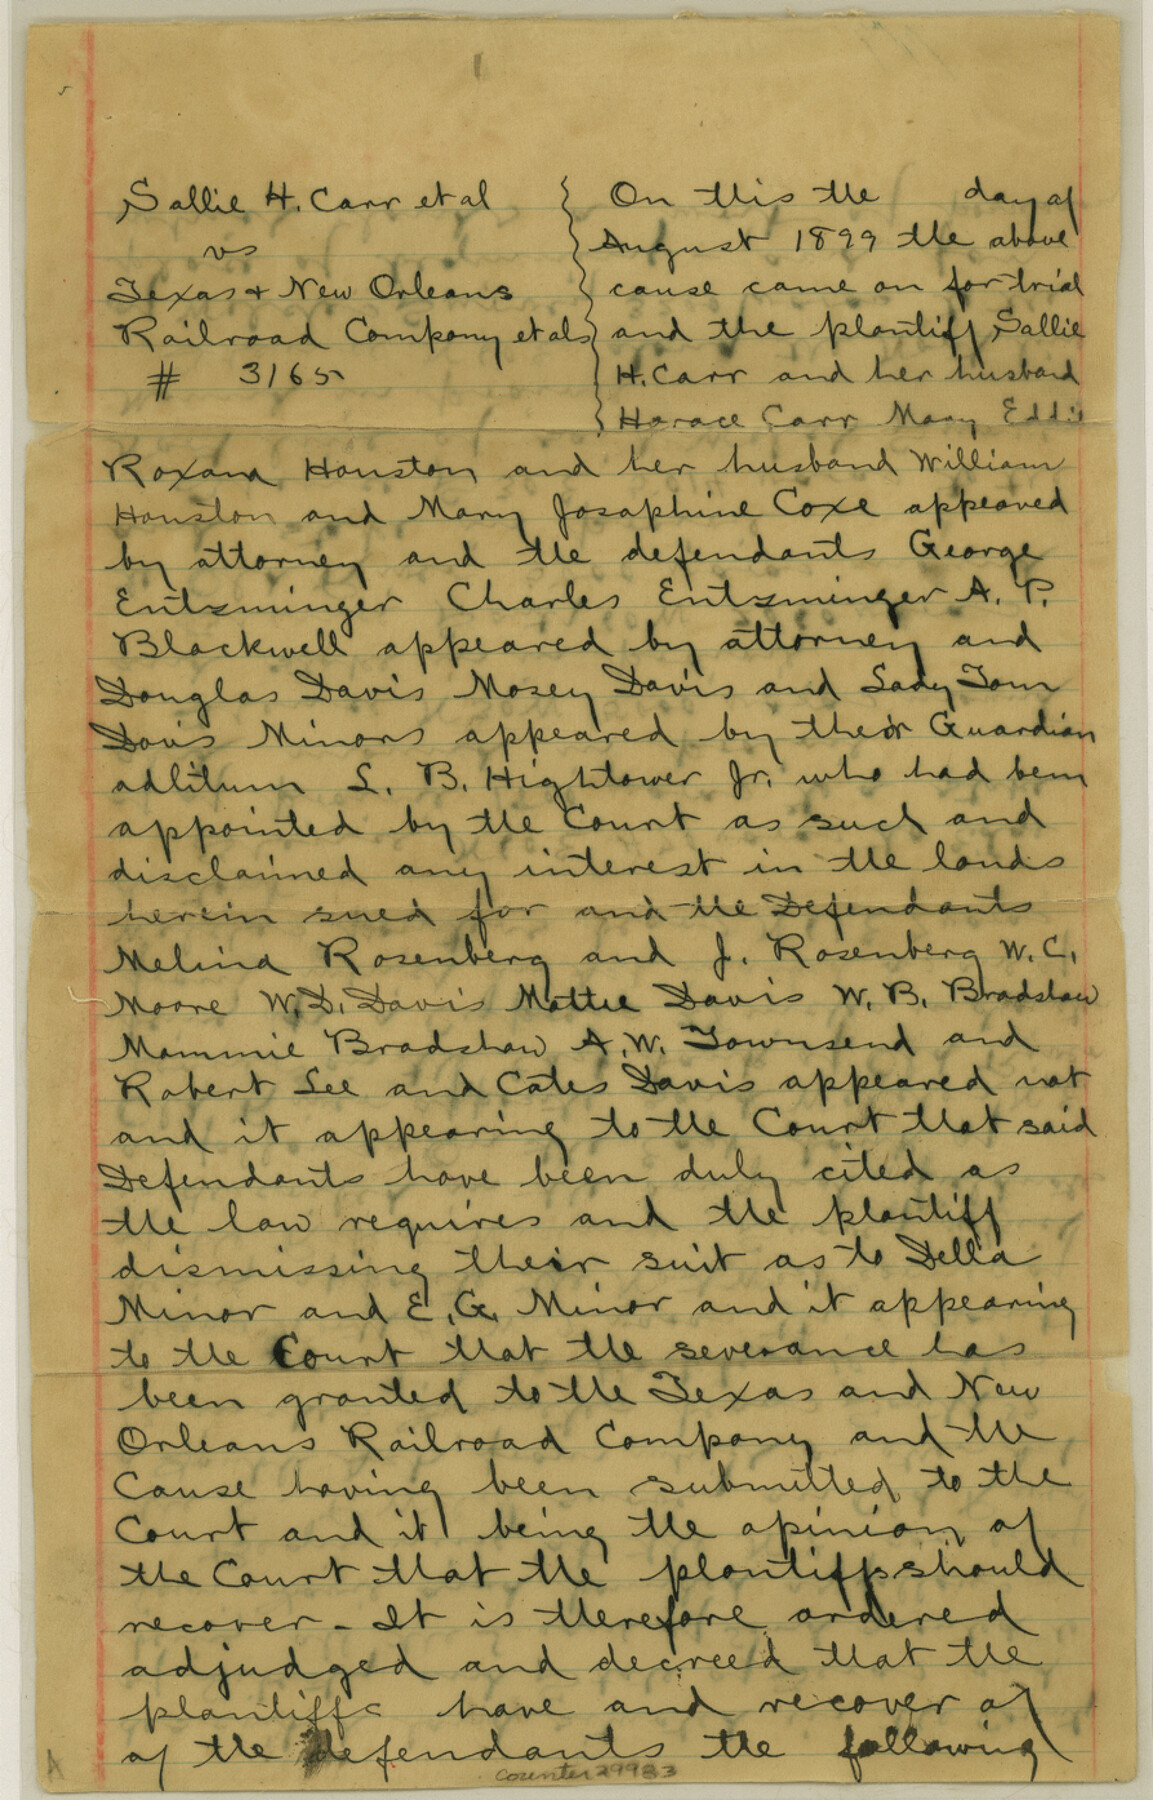 Sallie H. Carr et al
vs
Texas & New Orleans
Railroad Company et als
# 3165
On this the day of
August 1899 the above
cause came on for trial
and the plantiff Sallie
H. Carr and her husband
Horace Carr Mary Eddie
Roxana Houston and her husband William
Houston and Mary Josaphine Coxe appeared
by attorney and the defendants George
Entzminger Charles Entzminger A. P.
Blackwell appeared by attorney and
Douglas Davis Mosey Davis and Lady Tom
Davis Minors appeared by their Guardian
adlitum L. B. Hightower Jr. who had been
appointed by the Court as such and
disclaimed any interest in the lands
herein sued for and the Defendants
Melina Rosenberg and J. Rosenberg W. C.
Moore W. D. Davis Mattie Davis W. B. Bradshaw
Mammie Bradshaw A. W. Townsend and
Robert Lee and Cates Davis appeared not
and it appearing to the Court that said
Defendants have been duly cited as
the law requires and the plantiff
dismissing their suit as to Della
Minor and E. G. Minor and it appearing
to the Court that the severance has
been granted to the Texas and New
Orleans Railroad Company and the
Cause having been submitted to the
Court and it being the opinion of
the Court that the plantiffs should
recover - It is therefore ordered
adjudged and decreed that the
plantiffs have and recover of
of the defendants the following
counter 29983